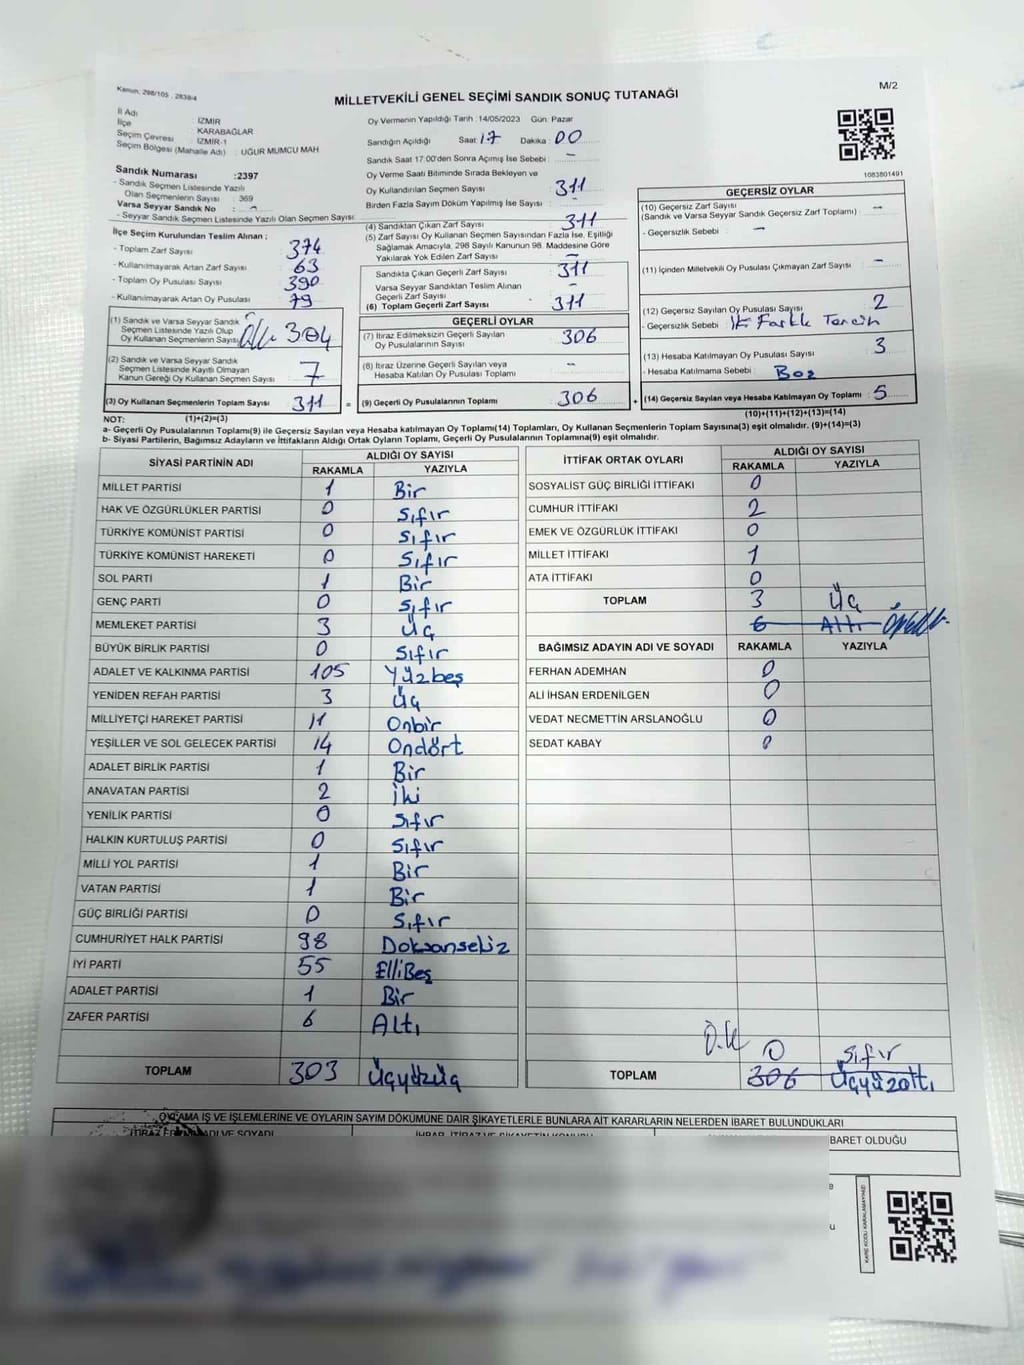 Kanun: 298/105 , 2839/4
M/2
MİLLETVEKİLİ GENEL SEÇİMİ SANDIK SONUÇ TUTANAĞI
İl Adı : İZMİR
İlçe : KARABAĞLAR
Seçim Çevresi : İZMİR-1
Seçim Bölgesi (Mahalle Adı) : UĞUR MUMCU MAH
Sandık Numarası :2397
- Sandık Seçmen Listesinde Yazılı
Olan Seçmenlerin Sayısı : 369
Varsa Seyyar Sandık No : -
- Seyyar Sandık Seçmen Listesinde Yazılı Olan Seçmen Sayısı:
İlçe Seçim Kurulundan Teslim Alınan ;
- Toplam Zarf Sayısı : 374
- Kullanılmayarak Artan Zarf Sayısı : 63
- Toplam Oy Pusulası Sayısı : 390
- Kullanılmayarak Artan Oy Pusulası : 79
(1) Sandık ve Varsa Seyyar Sandık
Seçmen Listesinde Yazılı Olup
Oy Kullanan Seçmenlerin Sayısı 304
(2) Sandık ve Varsa Seyyar Sandık
Seçmen Listesinde Kayıtlı Olmayan
Kanun Gereği Oy Kullanan Seçmen Sayısı 7
(3) Oy Kullanan Seçmenlerin Toplam Sayısı 311 =
Oy Vermenin Yapıldığı Tarih :14/05/2023 Gün: Pazar
Sandığın Açıldığı Saat: 17 Dakika: 00
Sandık Saat 17:00'den Sonra Açımış İse Sebebi : -
Oy Verme Saati Bitiminde Sırada Bekleyen ve
Oy Kullandırılan Seçmen Sayısı : 311
Birden Fazla Sayım Döküm Yapılmış İse Sayısı : -
(4) Sandıktan Çıkan Zarf Sayısı : 311
(5) Zarf Sayısı Oy Kullanan Seçmen Sayısından Fazla İse, Eşitliği
Sağlamak Amacıyla, 298 Sayılı Kanunun 98. Maddesine Göre
Yakılarak Yok Edilen Zarf Sayısı : -
Sandıkta Çıkan Geçerli Zarf Sayısı : 311
Varsa Seyyar Sandıktan Teslim Alınan
Geçerli Zarf Sayısı : -
(6) Toplam Geçerli Zarf Sayısı : 311
GEÇERLİ OYLAR
(7) İtiraz Edilmeksizin Geçerli Sayılan
Oy Pusulalarının Sayısı : 306
(8) İtiraz Üzerine Geçerli Sayılan veya
Hesaba Katılan Oy Pusulası Toplamı : -
(9) Geçerli Oy Pusulalarının Toplamı : 306 +
1083801491
GEÇERSİZ OYLAR
(10) Geçersiz Zarf Sayısı
(Sandık ve Varsa Seyyar Sandık Geçersiz Zarf Toplamı) : -
- Geçersizlik Sebebi : -
(11) İçinden Milletvekili Oy Pusulası Çıkmayan Zarf Sayısı : -
(12) Geçersiz Sayılan Oy Pusulası Sayısı : 2
- Geçersizlik Sebebi : Farklı Tercih
(13) Hesaba Katılmayan Oy Pusulası Sayısı : 3
- Hesaba Katılmama Sebebi : Boş
(14) Geçersiz Sayılan veya Hesaba Katılmayan Oy Toplamı : 5
NOT: (1)+(2)=(3) (10)+(11)+(12)+(13)=(14)
a- Geçerli Oy Pusulalarının Toplamı(9) ile Geçersiz Sayılan veya Hesaba katılmayan Oy Toplamı(14) Toplamları, Oy Kullanan Seçmenlerin Toplam Sayısına(3) eşit olmalıdır. (9)+(14)=(3)
b- Siyasi Partilerin, Bağımsız Adayların ve İttifakların Aldığı Ortak Oyların Toplamı, Geçerli Oy Pusulalarının Toplamına(9) eşit olmalıdır.
SİYASİ PARTİNİN ADI ALDIĞI OY SAYISI
RAKAMLA YAZIYLA
MİLLET PARTİSİ 1 Bir
HAK VE ÖZGÜRLÜKLER PARTİSİ 0 Sıfır
TÜRKİYE KOMÜNİST PARTİSİ 0 Sıfır
TÜRKİYE KOMÜNİST HAREKETİ 0 Sıfır
SOL PARTİ 1 Bir
GENÇ PARTİ 0 Sıfır
MEMLEKET PARTİSİ 3 Üç
BÜYÜK BİRLİK PARTİSİ 0 Sıfır
ADALET VE KALKINMA PARTİSİ 105 Yüzbeş
YENİDEN REFAH PARTİSİ 3 Üç
MİLLİYETÇİ HAREKET PARTİSİ 11 Onbir
YEŞİLLER VE SOL GELECEK PARTİSİ 14 Ondört
ADALET BİRLİK PARTİSİ 1 Bir
ANAVATAN PARTİSİ 2 İki
YENİLİK PARTİSİ 0 Sıfır
HALKIN KURTULUŞ PARTİSİ 0 Sıfır
MİLLİ YOL PARTİSİ 1 Bir
VATAN PARTİSİ 1 Bir
GÜÇ BİRLİĞİ PARTİSİ 0 Sıfır
CUMHURİYET HALK PARTİSİ 98 Doksansekiz
İYİ PARTİ 55 ElliBeş
ADALET PARTİSİ 1 Bir
ZAFER PARTİSİ 6 Altı
TOPLAM 303 Üçyüzüç
İTTİFAK ORTAK OYLARI ALDIĞI OY SAYISI
RAKAMLA YAZIYLA
SOSYALİST GÜÇ BİRLİĞİ İTTİFAKI 0
CUMHUR İTTİFAKI 2
EMEK VE ÖZGÜRLÜK İTTİFAKI 0
MİLLET İTTİFAKI 1
ATA İTTİFAKI 0
TOPLAM 3 Üç
6 Altı
BAĞIMSIZ ADAYIN ADI VE SOYADI RAKAMLA YAZIYLA
FERHAN ADEMHAN 0
ALİ İHSAN ERDENİLGEN 0
VEDAT NECMETTİN ARSLANOĞLU 0
SEDAT KABAY 0
Ö.K 0 Sıfır
TOPLAM 306 Üçyüzaltı
OYLAMA İŞ VE İŞLEMLERİNE VE OYLARIN SAYIM DÖKÜMÜNE DAİR ŞİKAYETLERLE BUNLARA AİT KARARLARIN NELERDEN İBARET BULUNDUKLARI
BARET OLDUĞU
KARE KODU KARALAMAYINIZ!